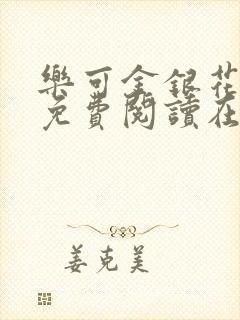 樂可金銀花
免費閱讀在
姜克美